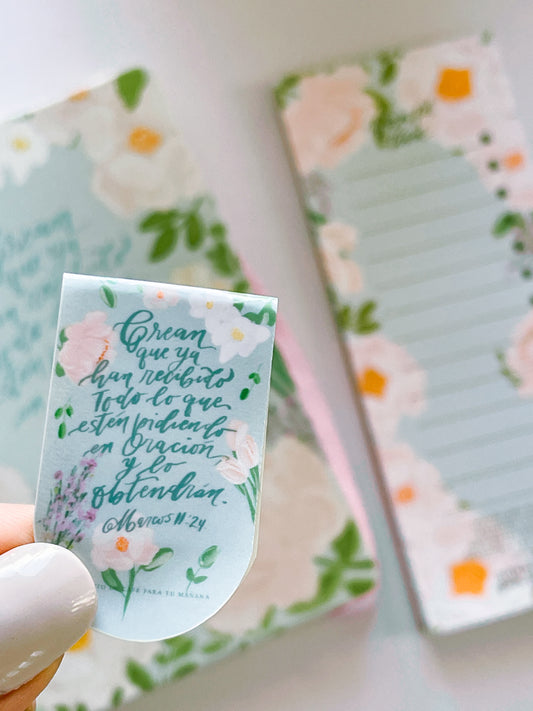 Crean
que ya
han recibido
Todo lo que
estén pidiendo
en Oración
y lo
obtendrán.
Marcos 11:24
PARA TU MAÑANA